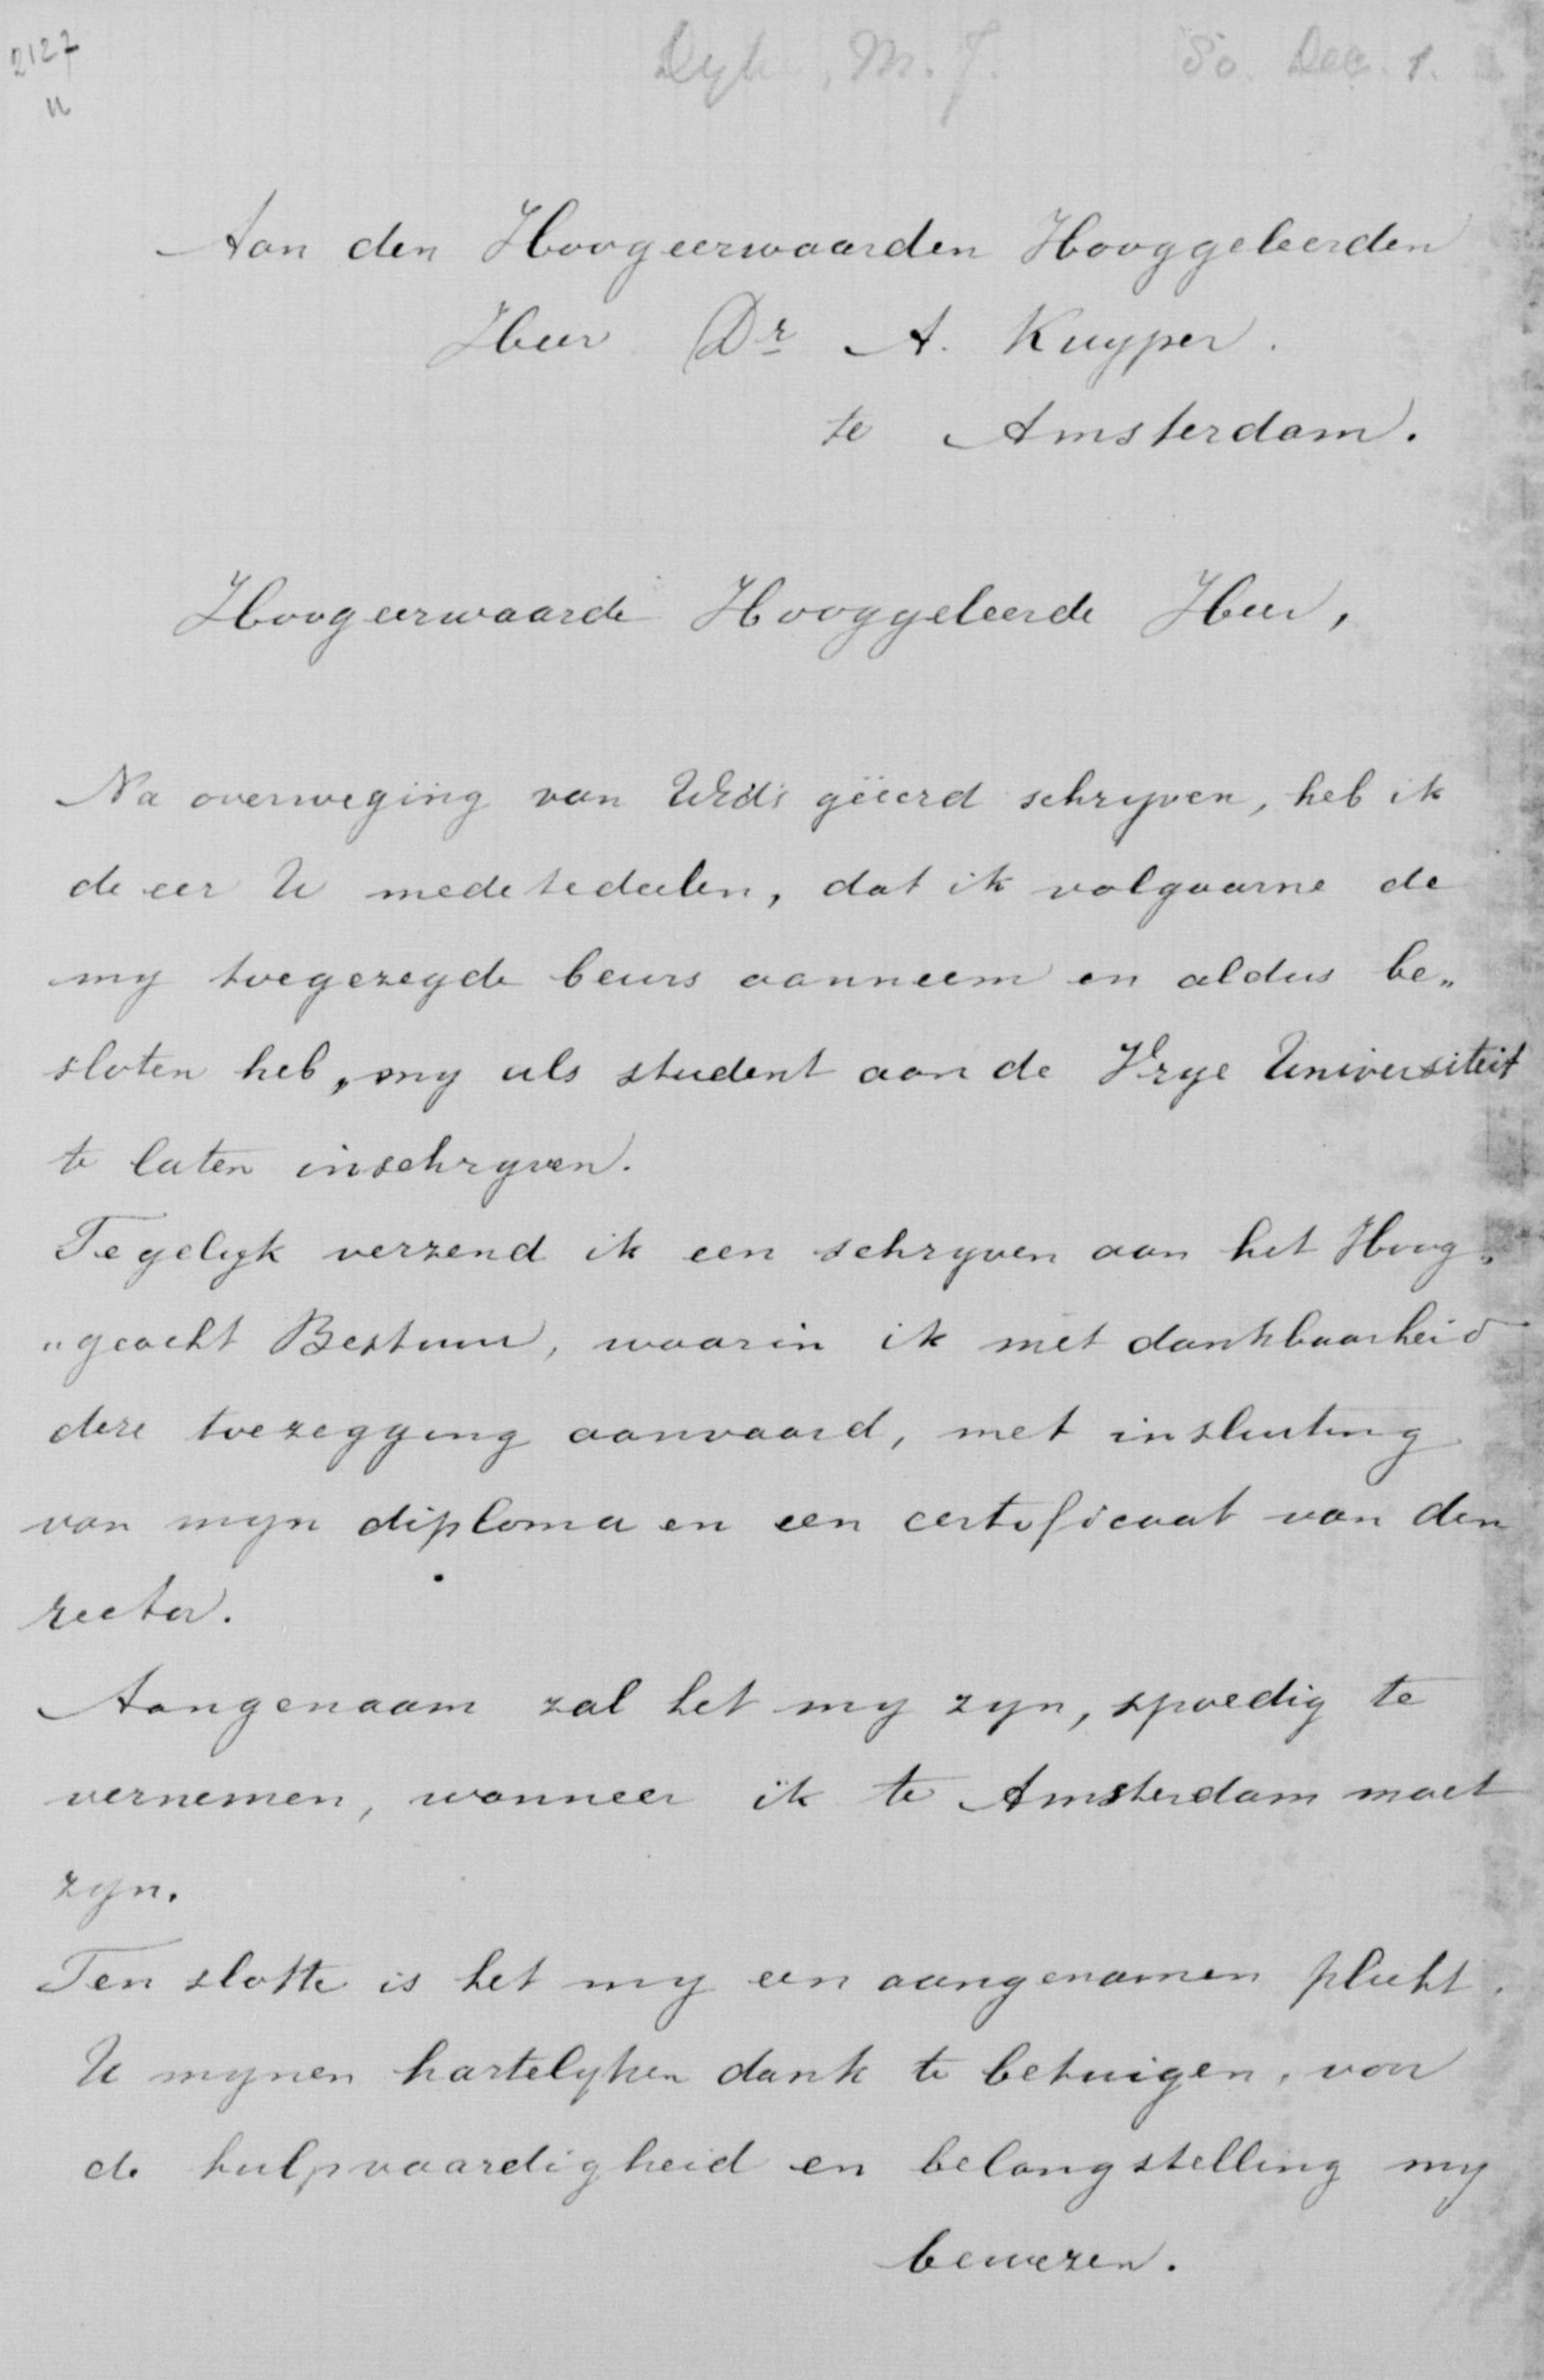 2127
Dyk, M. J.
Dec. 1.
Aan den Hoogeerwaarden Hooggeleerden
Heer Dr A. Kuyper.
te Amsterdam.
Hoogeerwaarde Hooggeleerde Heer,
Na overweging van UEd's geëerd schryven, heb ik
de eer U medetedeelen, dat ik volgaarne de
my toegezegde beurs aanneem en aldus be„
sloten heb, my als student aan de Vrye Universiteit
te laten inschryven.
Tegelyk verzend ik een schryven aan het Hoog„
„geacht Bestuur, waarin ik met dankbaarheid
deze toezegging aanvaard, met insluiting
van myn diploma en een certificaat van den
rector.
Aangenaam zal het my zyn, spoedig te
vernemen, wanneer ik te Amsterdam moet
zyn.
Ten slotte is het my een aangenamen plicht.
U mynen hartelyken dank te betuigen, voor
de hulpvaardigheid en belangstelling my
bewezen.